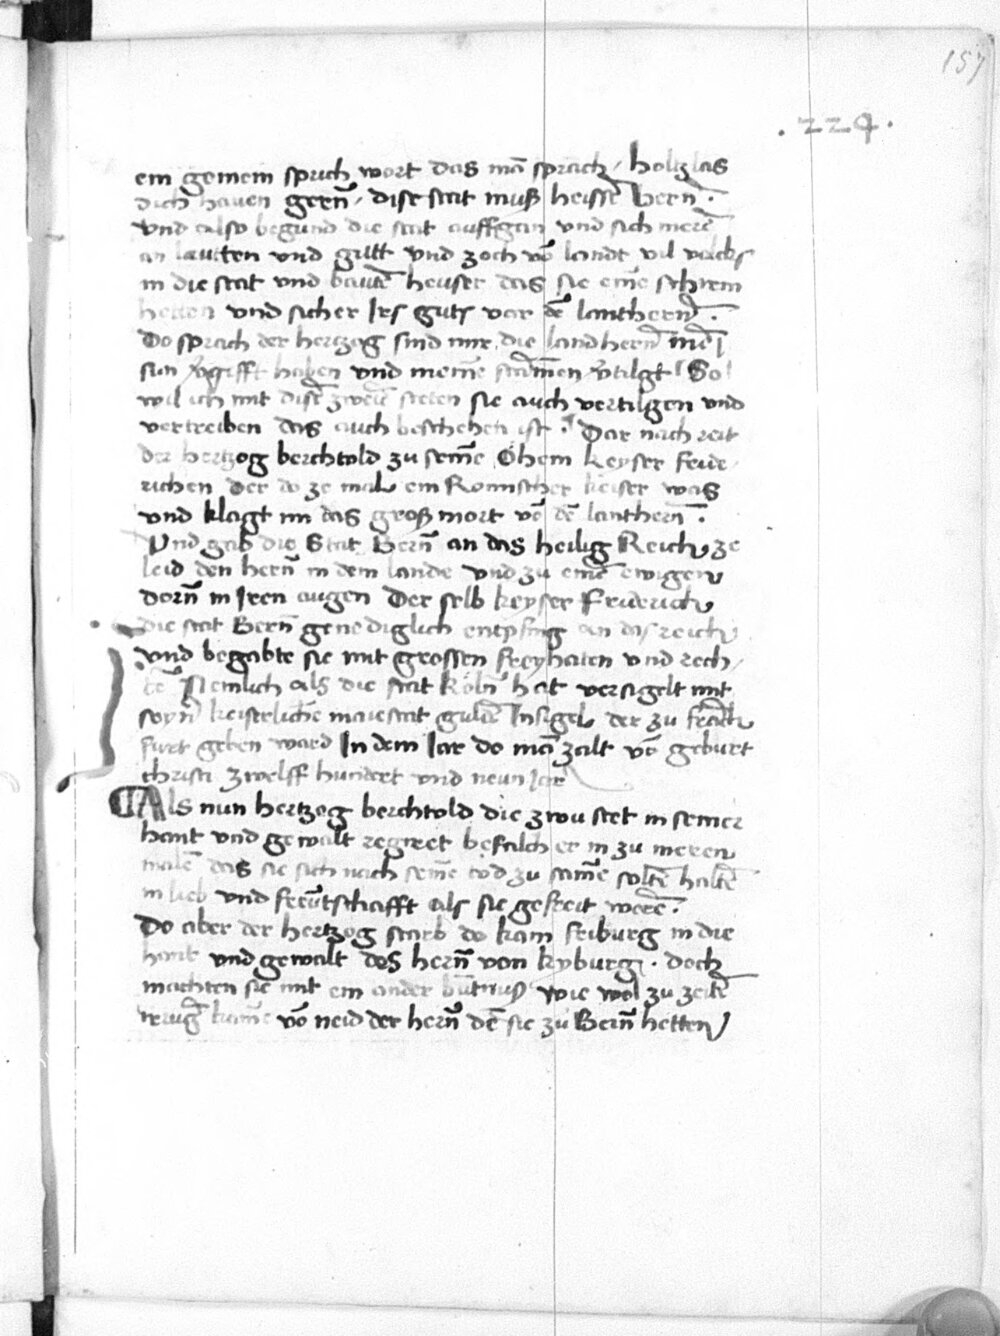 157
. 224 .
ein gemein spruch wort das mā sprach / holtz las
dich hauen gern̄ / dise stat muß heissē bern̄ .
Und also begund die stat auffgan und sich merē
an leutten und gutt und zoch vō landt vil volcks
in die stat und bautē heuser das sie einē schirm
hetten und sicher Irs guts vor dē lanthern̄ .
Do sprach der hertzog sind mir die landhern̄
sun haben und meinē stammen So
wil ich mit disē zweiē steten sie auch vertilgen und
vertreiben das auch beschehen ist . Dar nach reit
der hertzog berchtold zu seinē Öhem keyser fride
richen der do ze mal ein Romischer keiser was
und klagt im das groß mort vō dē lanthern̄ .
Und gab die Stat Bern̄ an das heilig Reich ze
leid den hern̄ in dem lande und zu einē ewigen
dorn̄ in Iren augen Der selb keyser Friderich
die stat Bern̄ genediglich entpfing an das reich
und begabte sie mit grossen freyhaiten und rech /
tē Nemlich als die stat Köln̄ hat versigelt mit
seyn̄ keiserlichē maiestat guldē Insigel der zu franck
furt geben ward In dem Iar do mā zalt vō geburt
christi zwelff hundert und neun Iar
Als nun hertzog berchtold die zwu stet in seiner
hant und gewalt regiret befalch er in zu meren
malē das sie sich nach seinē tod zu samē soltē haltē
in lieb und freūtschafft als sie gefreit werē .
Do aber der hertzog starb do kam friburg in die
hant und gewalt des hern̄ von kyburg . doch
machten sie mit ein ander būtnuß wie wol zu zeitē
kamē vō neid der hern̄ dē sie zu Bern̄ hetten